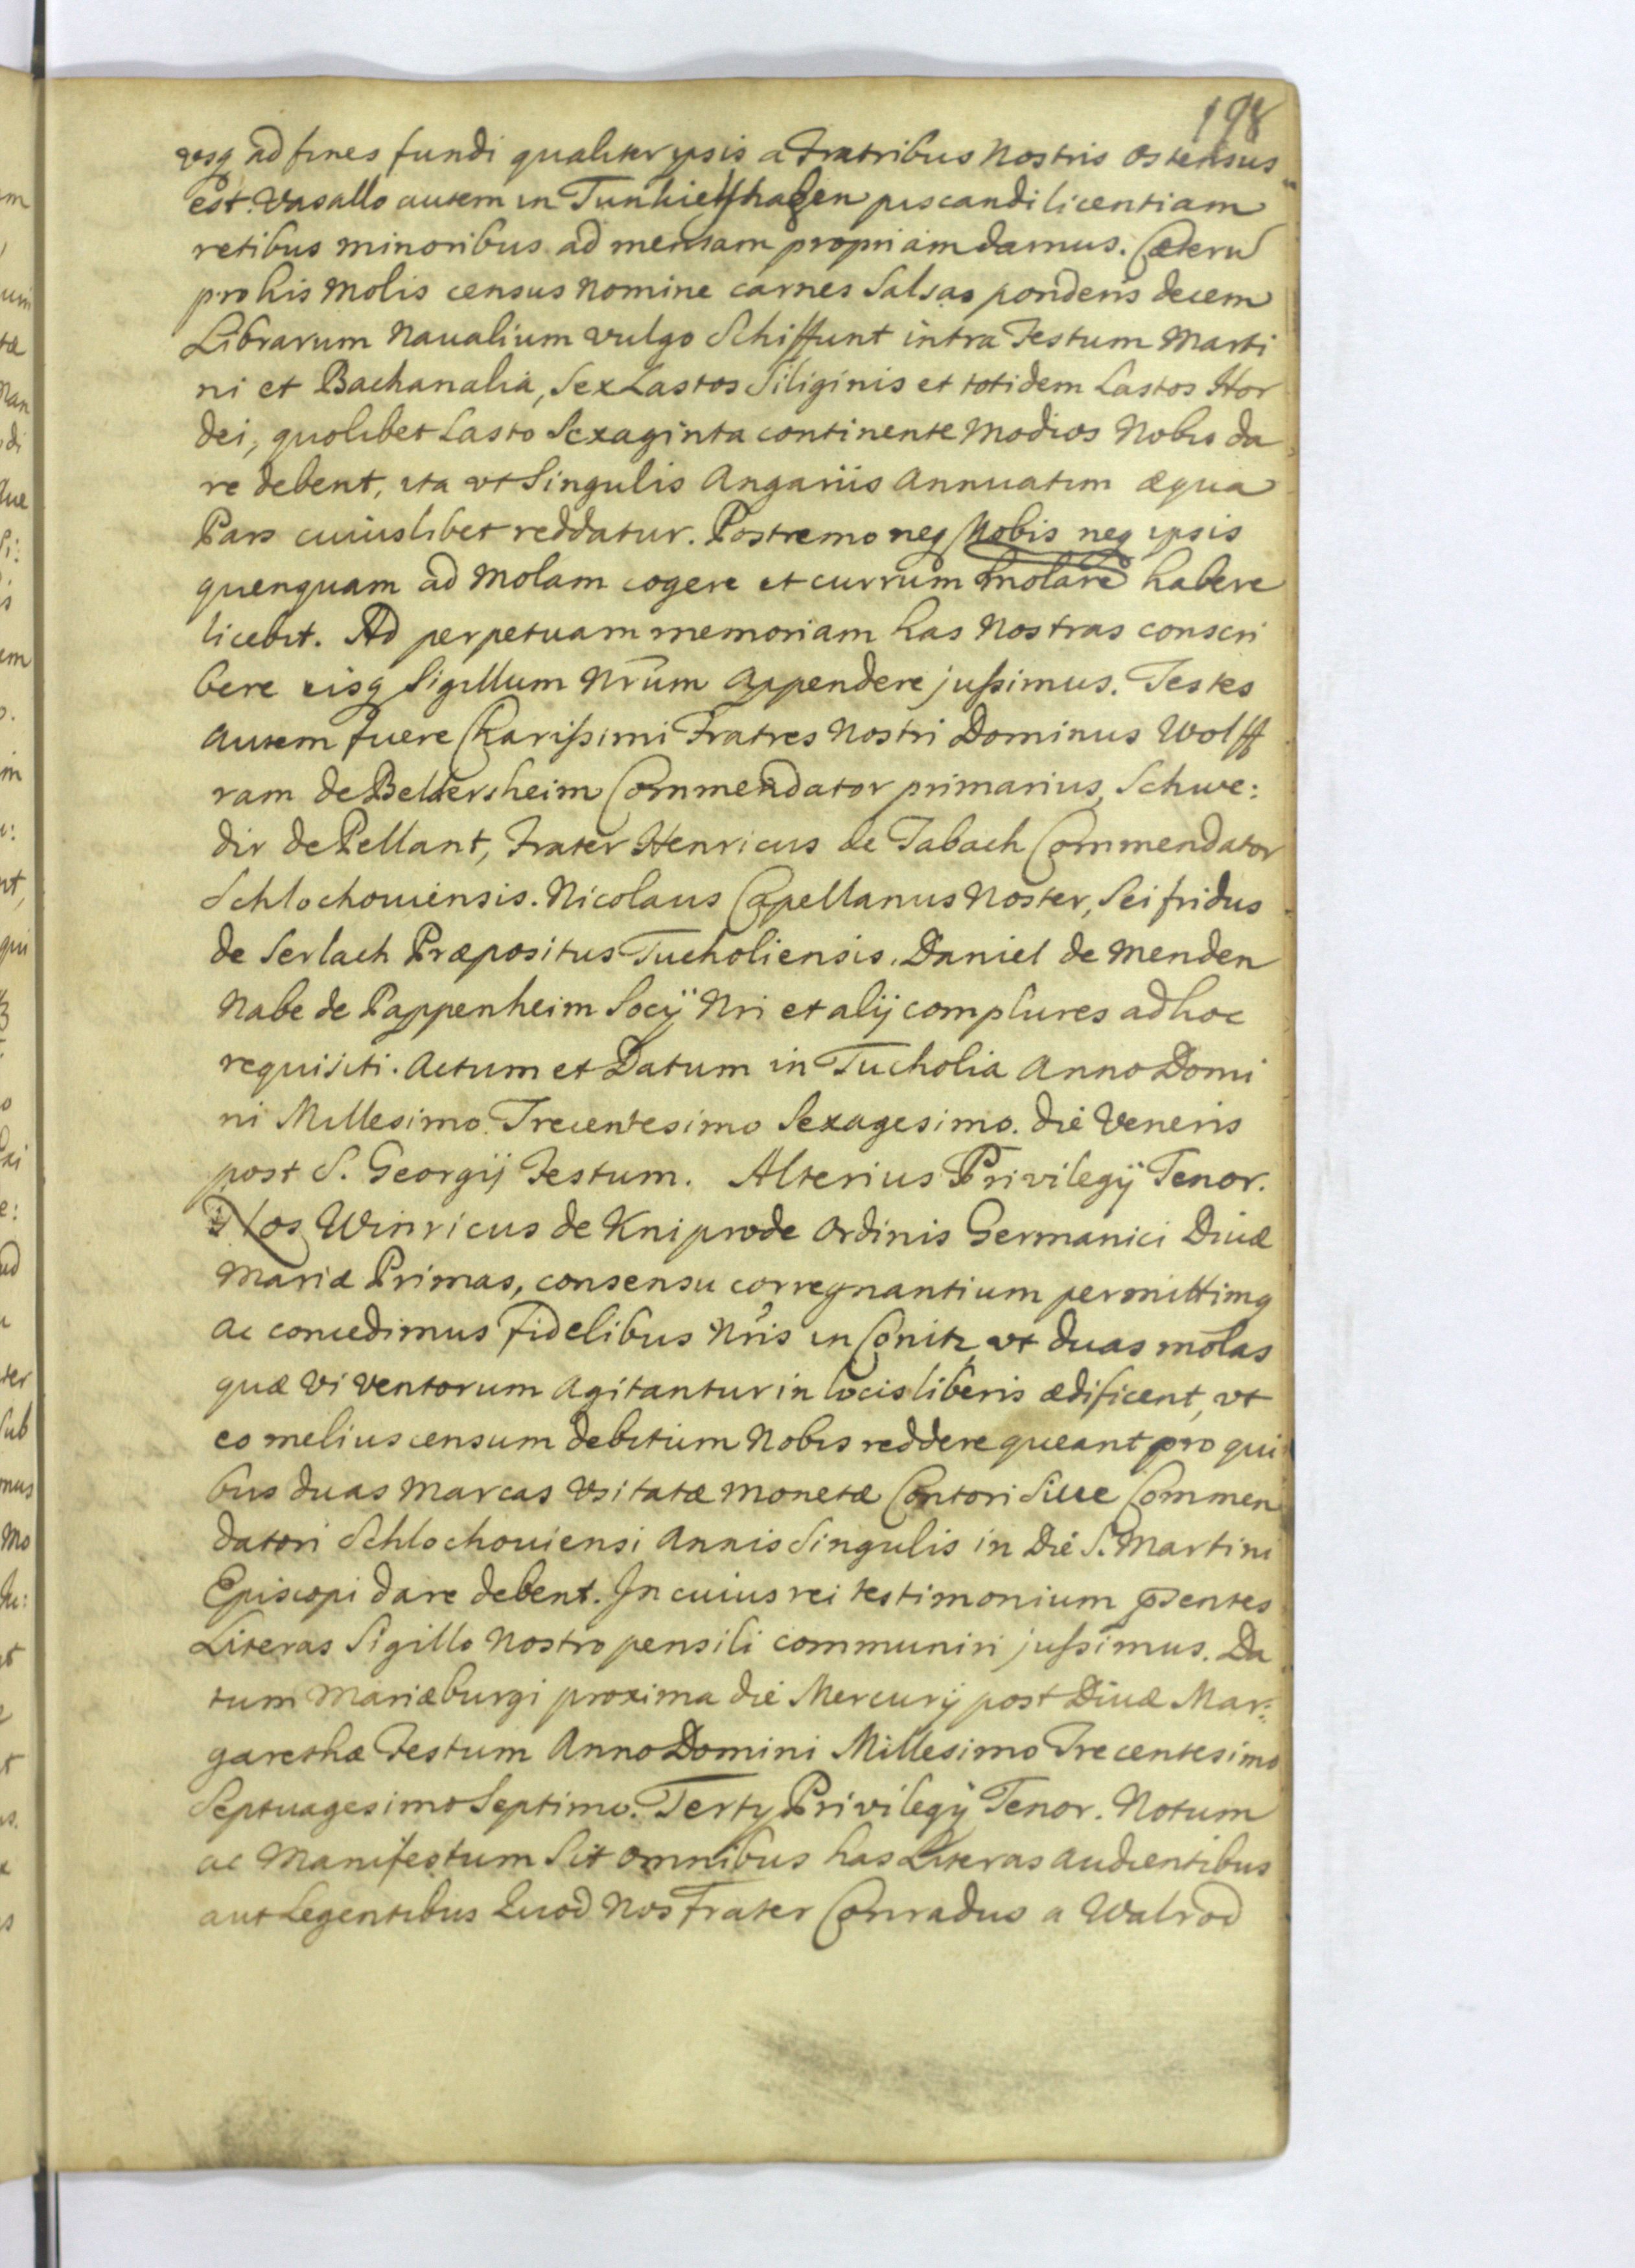 198
vsq ad fines fundi qualiter ipsis a Fratribus Nostris ostensus
est. Vasallo autem in piscandi licentiam
retibus minoribus ad mensam propriam damus. Cæterũ
pro his Molis census Nomine carnes Salsas ponderis decem
Librarum Naualium vulgo Schiffunt intra Festum Marti
ni et Bachanalia, Sex Lastos Siliginis et totidem Lastos Hor
dei, quolibet Lasto Sexaginta continente Modios Nobis da
re debent, ita vt Singulis Angariis Annuatim æqua
Pars cuiuslibet reddatur. Postremo neq Nobis neq ipsis
quenquam ad Molam cogere et currum molarẽ habere
licebit. Ad perpetuam memoriam has Nostras conscri
bere eisq Sigillum Nrũm Appendere jussimus. Testes
Autem fuere Charissimi Fratres Nostri Dominus Wolff
ram de Beldersheim Commendator primarius, Schwe:
dir de Pellant, Frater Henricus de Tabach Commendator
Schlochouiensis. Nicolaus Capellanus Noster, Seifridus
de Serlach Præpositus Tucholiensis. Daniel de Menden
Nabe de Pappenheim Socij Nri et alij complures ad hoc
requisiti. Actum et Datum in Tucholia Anno Domi
ni Millesimo Trecentesimo Sexagesimo. die Veneris
post S. Georgij Festum. Alterius Privilegij Tenor.
Nos Winricus de Kniprode Ordinis Germanici Diuæ
Mariæ Primas, consensu corregnantium permittimq
Ac concedimus Fidelibus Nris in Conitz, vt duas molas
quæ Vi Ventorum Agitantur in locis liberis ædificent, vt
eo melius censum debitum Nobis reddere queant pro qui
bus duas Marcas Vsitatæ Monetæ Contori Siue Commen
datori Schlochouiensi Annis Singulis in Die S. Martini
Episcopi dare debent. In cuius rei testimonium pñtes
Literas Sigillo Nostro pensili communiri jussimus. Da
tum Mariæburgi proxima die Mercurij post Diuæ Mar:
garethæ Festum Anno Domini Millesimo Trecentesimo
Septuagesimo Septimo. Tertij Privilegij Tenor. Notum
ac Manifestum Sit omnibus has Literas Audientibus
aut Legentibus Quod Nos Frater Conradus a Walrod